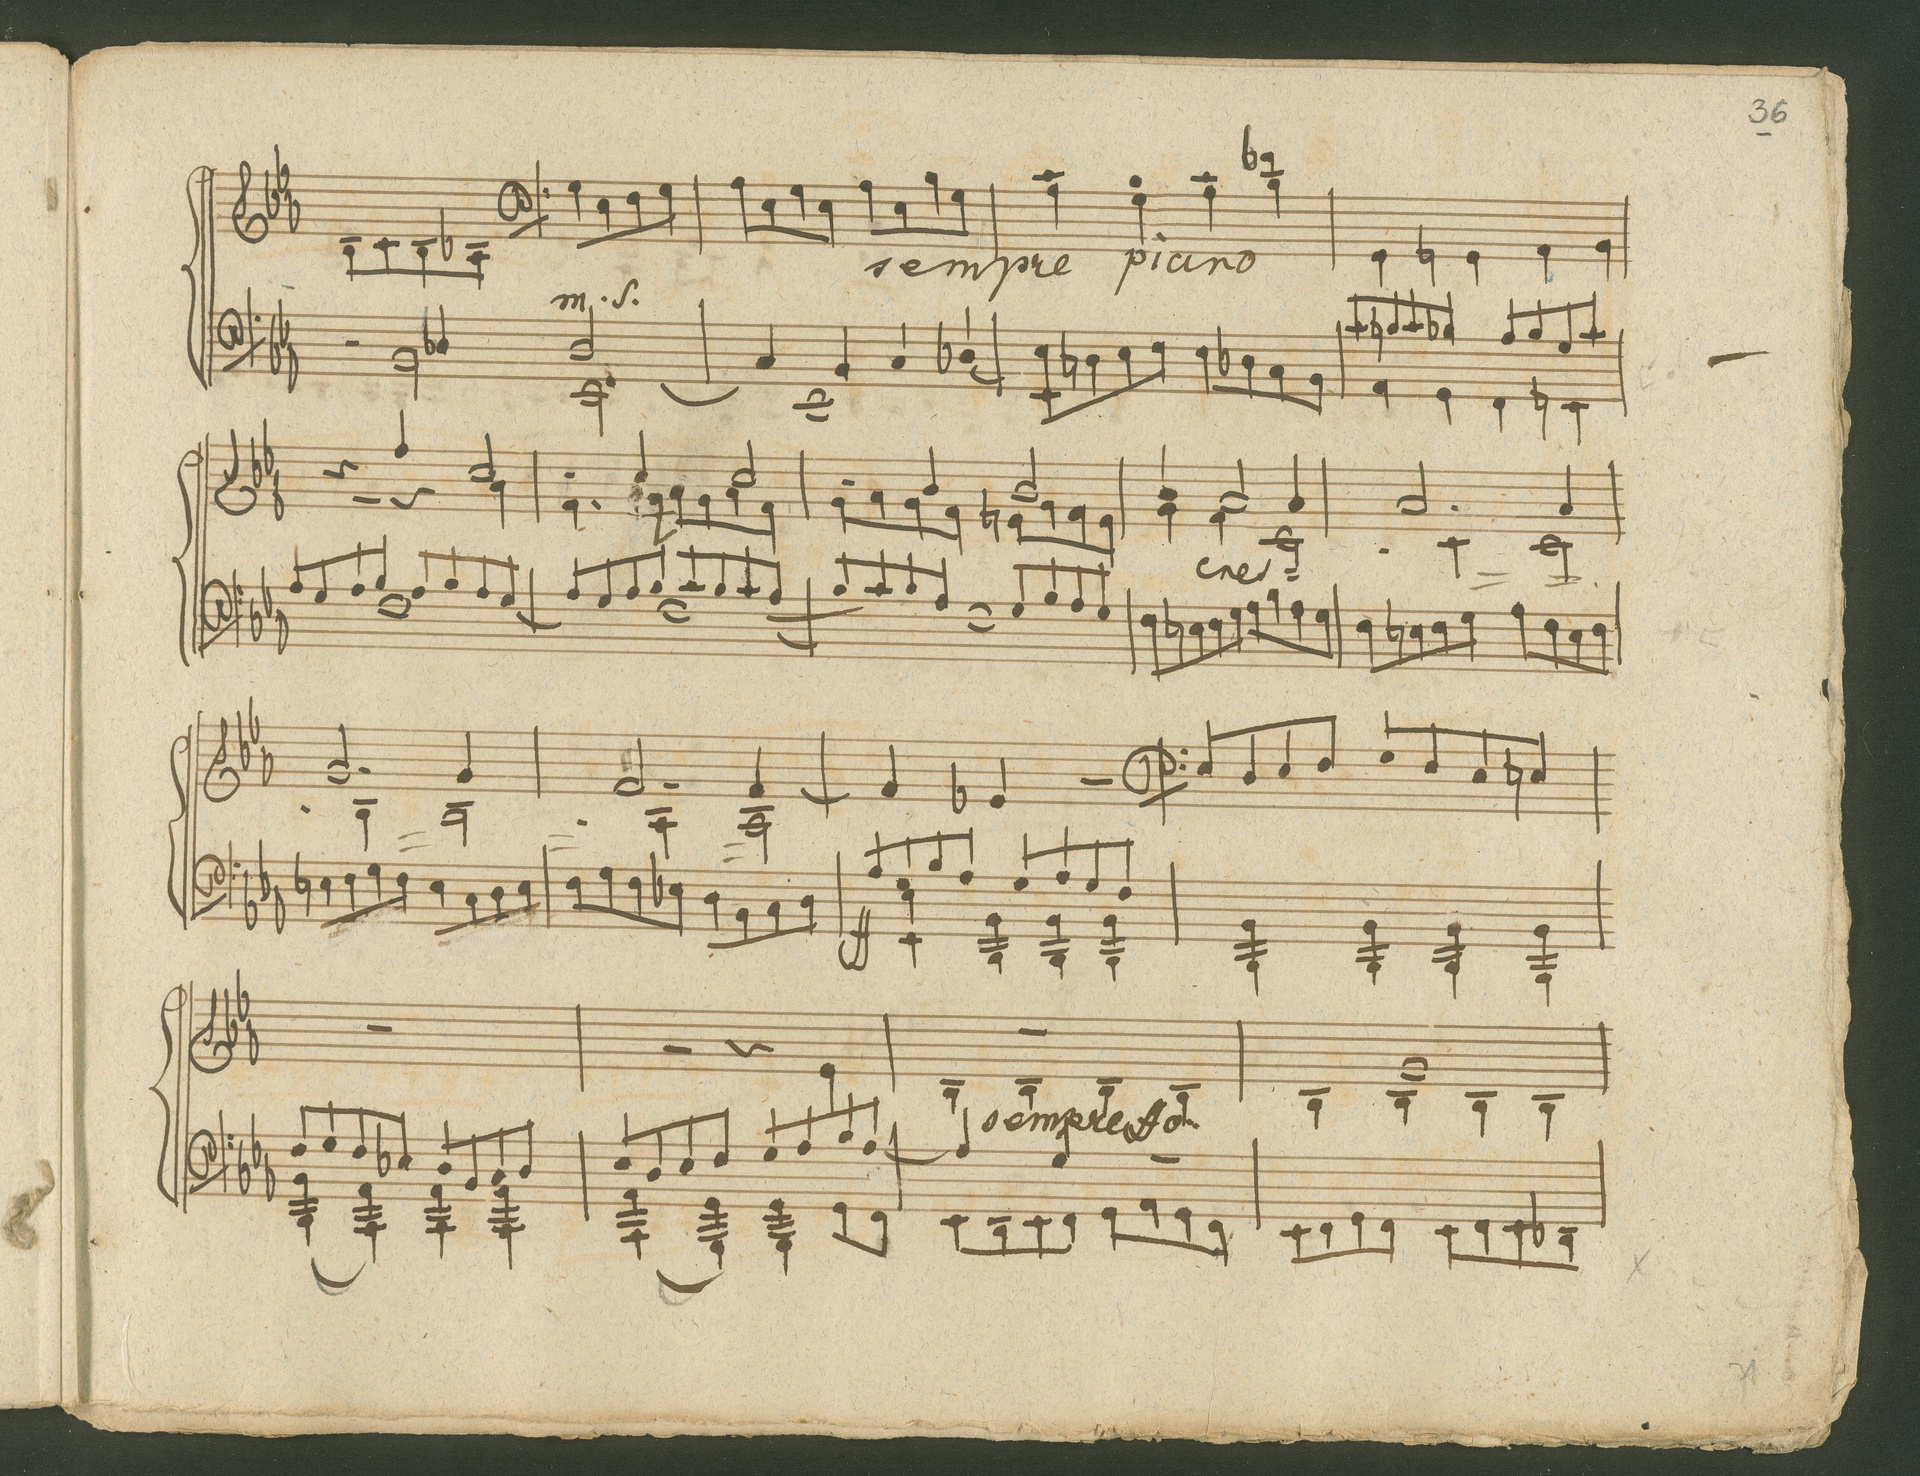 36
sempre piano
m. s.
cres
ff
sempre ffo.